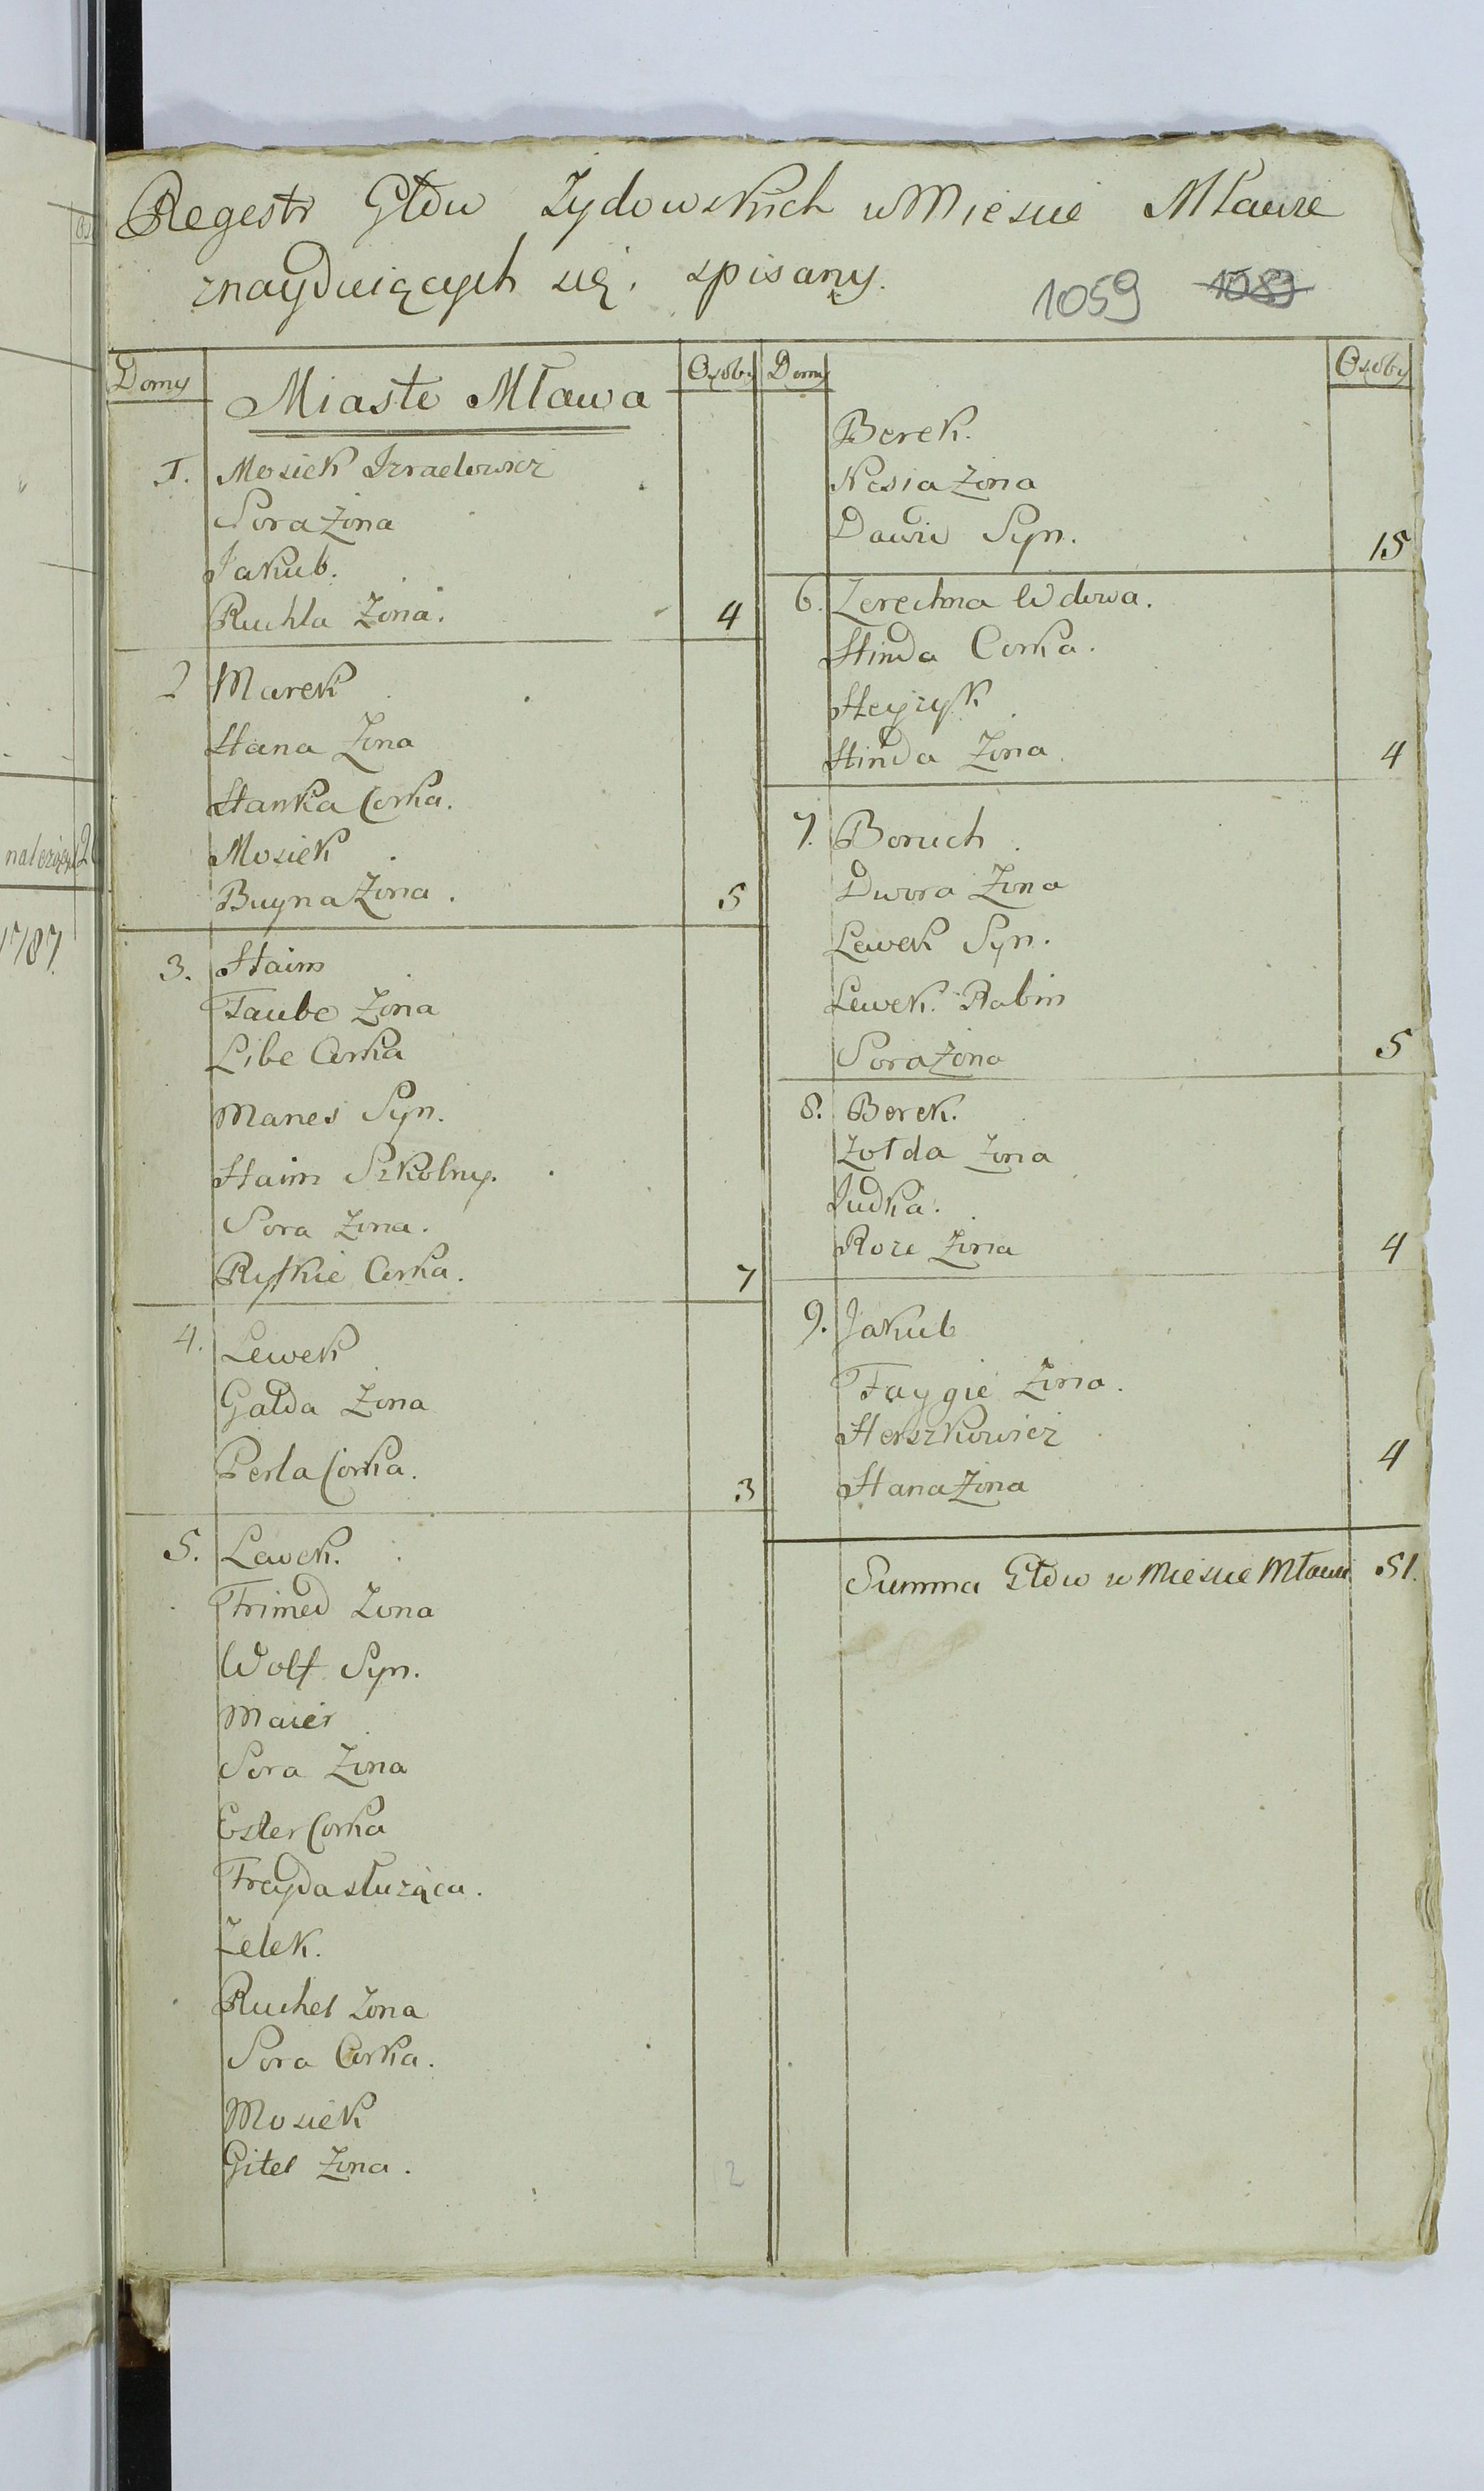 Regestr Głow Zydowskich w Miescie Mławie
znayduiących się, spisany.
1059 1089
Domy Osoby
Miasto Mława
1. Mosiek Izraelowicz
Sora Żona
Jakub.
Ruchla Żona. 4
2 Marek
Hana Żona
Hanka Corka.
Mosiek
Buyna Żona. 5
3. Haim
Taube Żona
Libe Corka
Manes Syn.
Haim Szkolny.
Sora Żona.
Ryfkie Corka. 7
4. Lewek
Gałda Żona
Perla Corka. 3
5. Lewek.
Frimed Żona
Wolf Syn.
Maier
Sora Żona
Ester Corka
Frayda służąca.
Zelek.
Ruchel Żona
Sora Corka.
Mosiek
Gitel Żona. 12
Domy Osoby
Berek.
Kesia Żona
Dawid Syn. 15
6. Zerechna Wdowa.
Hinda Corka.
Heyzyk
Hinda Żona 4
7. Boruch
Dwora Żona
Lewek Syn.
Lewek Rabin
Sora Żona 5
8. Berek.
Zołda Żona
Judka.
Roze Żona 4
9. Jakub
Faygie Żona.
Herszkowicz
Hana Żona 4
Summa Głow w Miescie Mławie 51.
należący 2
1787.